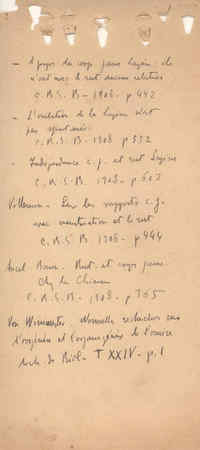 - A propos du corps jaune Lapine: ils
n'ont avec le rut aucune relation
C.R.S.B - 1908 - p 442
- L'ovulation de la Lapine n'est
pas spontanée:
C.R.S.B - 1908 p 552
- Indépendance c.j. et rut Lapine
C.R.S.B - 1908 - p 602
Villemin - Sur les rapports c.j.
avec menstruation et le rut
C.R.S B 1908 - p 444
Ancel Bouin. Rut et corps jaune
chez la Chienne
C.R.S.B - 1908 - p 365
Von Winiwarter Nouvelle recherches sur
l'ovogenèse et l'organogénèse de l'ovaire
Arch. de Biol. T XXIV - p.1